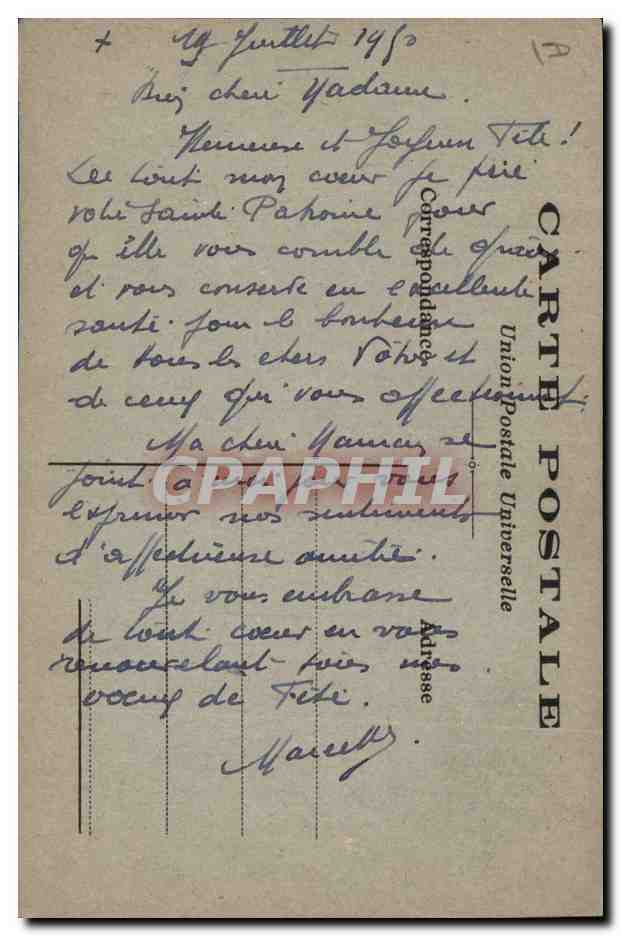 + 19 Juillet 1950
Bien chère Madame.
Heureuse et Joyeuse Fête !
De tout mon coeur je prie
votre Sainte Patronne pour
qu'elle vous comble de grâces
et vous conserve en excellente
santé pour le bonheur
de tous les chers Vôtres et
de ceux qui vous affectionnent.
Ma chère Maman se
joint à moi pour vous
exprimer nos sentiments
d'affectueuse amitié.
Je vous embrasse
de tout coeur en vous
renouvelant tous mes
voeux de Fête.
Marcelle.
CARTE POSTALE
Union Postale Universelle
Correspondance
Adresse
CPAPHIL